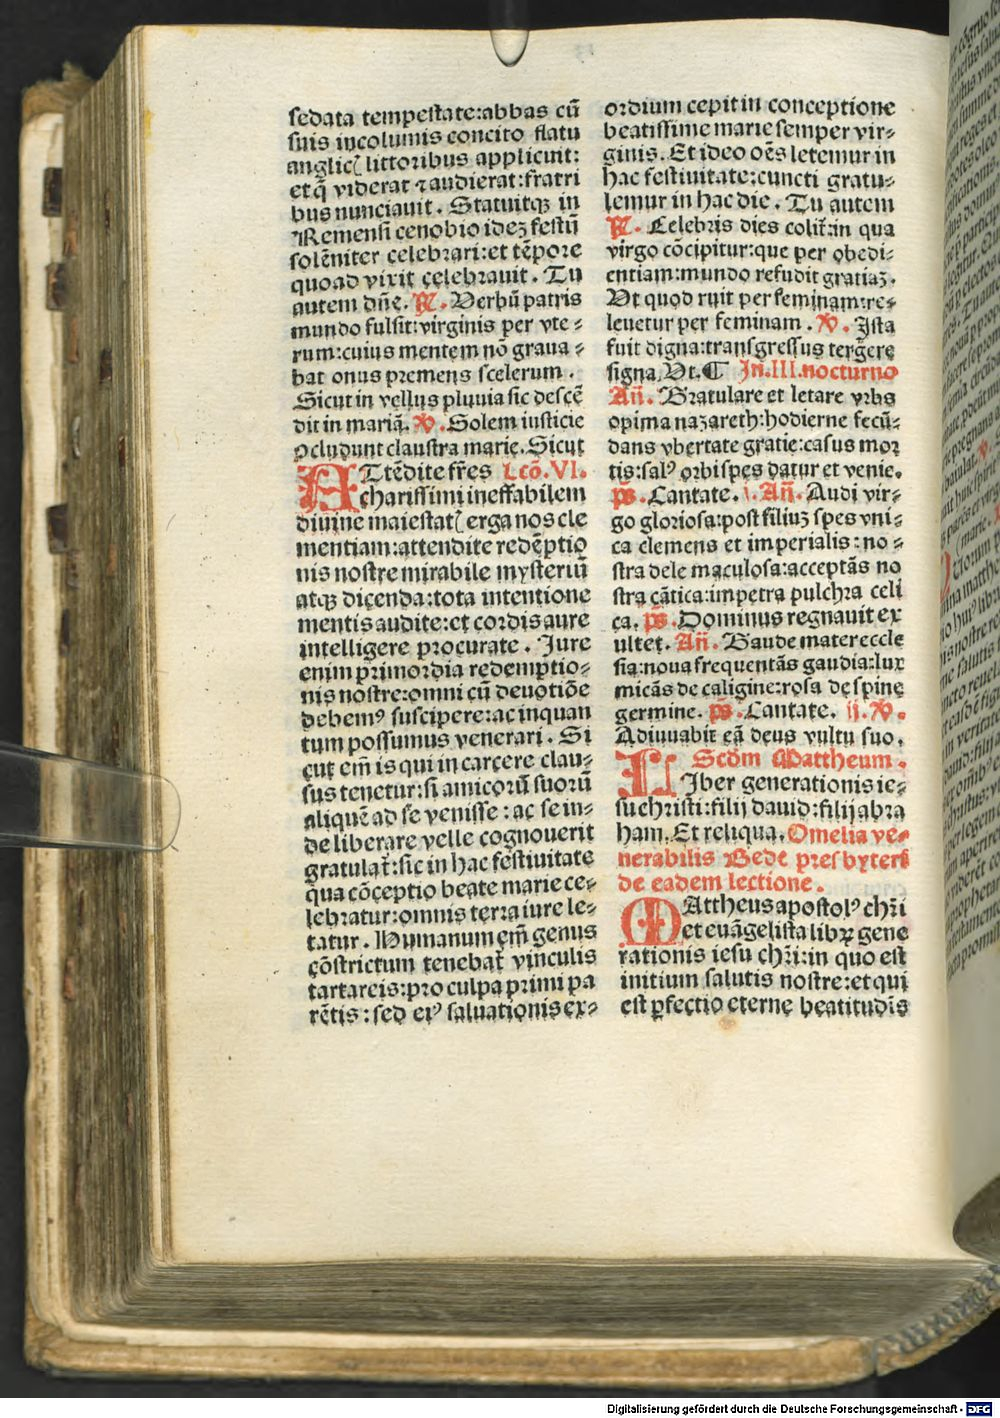 sedata tempestate:abbas cū
suis incolumis concito flatu
anglicꝭ littoribus applicuit:
et q̄ viderat ⁊ audierat:fratri
bus nunciauit. Statuitqꝫ in
Remensi cenobio ideꝫ festū
solēniter celebrari:et tēpore
quoad vixit celebrauit. Tu
autem dn̄e. ℟. Verbū patris
mundo fulsit:virginis per vte⸗
rum:cuius mentem nō graua⸗
bat onus premens scelerum.
Sicut in vellus pluuia sic descē
dit in mariā. ℣. Solem iusticie
ꝓcludunt claustra marie. Sicut
ATtēdite fr̄es Lcō. VI.
charissimi ineffabilem
diuine maiestatꝭ erga nos cle
mentiam:attendite redēptio
nis nostre mirabile mysteriū
atqꝫ dicenda:tota intentione
mentis audite:et cordis aure
intelligere procurate. Jure
enim primordia redemptio⸗
nis nostre:omni cū deuotiōe
debemꝰ suscipere:ac inquan
tum possumus venerari. Si
cut em̄ is qui in carcere clau⸗
sus tenetur:si amicorū suorū
aliquē ad se venisse: ac se in⸗
de liberare velle cognouerit
gratulat̄:sic in hac festiuitate
qua cōceptio beate marie ce⸗
lebratur:omnis terra iure le⸗
tatur. Humanum em̄ genus
cōstrictum tenebat̄ vinculis
tartareis:pro culpa primi pa
rētis: sed eiꝰ saluationis ex⸗
ordium cepit in conceptione
beatissime marie semper vir⸗
ginis. Et ideo oēs letemur in
hac festiuitate:cuncti gratu⸗
lemur in hac die. Tu autem
℟. Celebris dies colit̄:in qua
virgo cōcipitur:que per obedi⸗
entiam:mundo refudit gratiaꝫ.
Vt quod ruit per feminam:re⸗
leuetur per feminam. ℣. Ista
fuit digna:transgressus tergere
signa. Vt. ¶ In̄.III.nocturno
An̄. Gratulare et letare vrbs
opima nazareth:hodierne fecū⸗
dans vbertate gratie:casus mor
tis:salꝰ orbi spes datur et venie.
ps̄. Cantate. i. An̄. Audi vir⸗
go gloriosa:post filiuꝫ spes vni⸗
ca clemens et imperialis: no⸗
stra dele maculosa:acceptās no
stra cātica:impetra pulchra celi
ca. ps̄. Dominus regnauit ex
ultet. An̄. Gaude mater eccle
sia:noua frequentās gaudia:lux
micās de caligine:rosa de spine
germine. ps̄. Cantate. ij. ℣.
Adiuuabit eā deus vultu suo.
Scdm Mattheum.
LIber generationis ie⸗
su christi:filij dauid:filij abra
ham. Et reliqua. Omelia ve⸗
nerabilis Bede presbyteri
de eadem lectione.
MAttheus apostolꝰ chr̄i
et euāgelista libꝝ gene
rationis iesu chr̄i:in quo est
initium salutis nostre:et qui
est ꝑfectio eterne beatitudīs
Digitalisierung gefördert durch die Deutsche Forschungsgemeinschaft - DFG